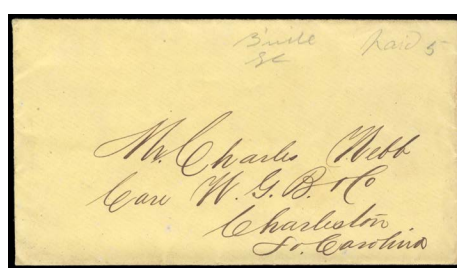 B'ville Paid 5
SC
Mr. Charles Webb
Care W. G. B. & Co
Charleston
So. Carolina